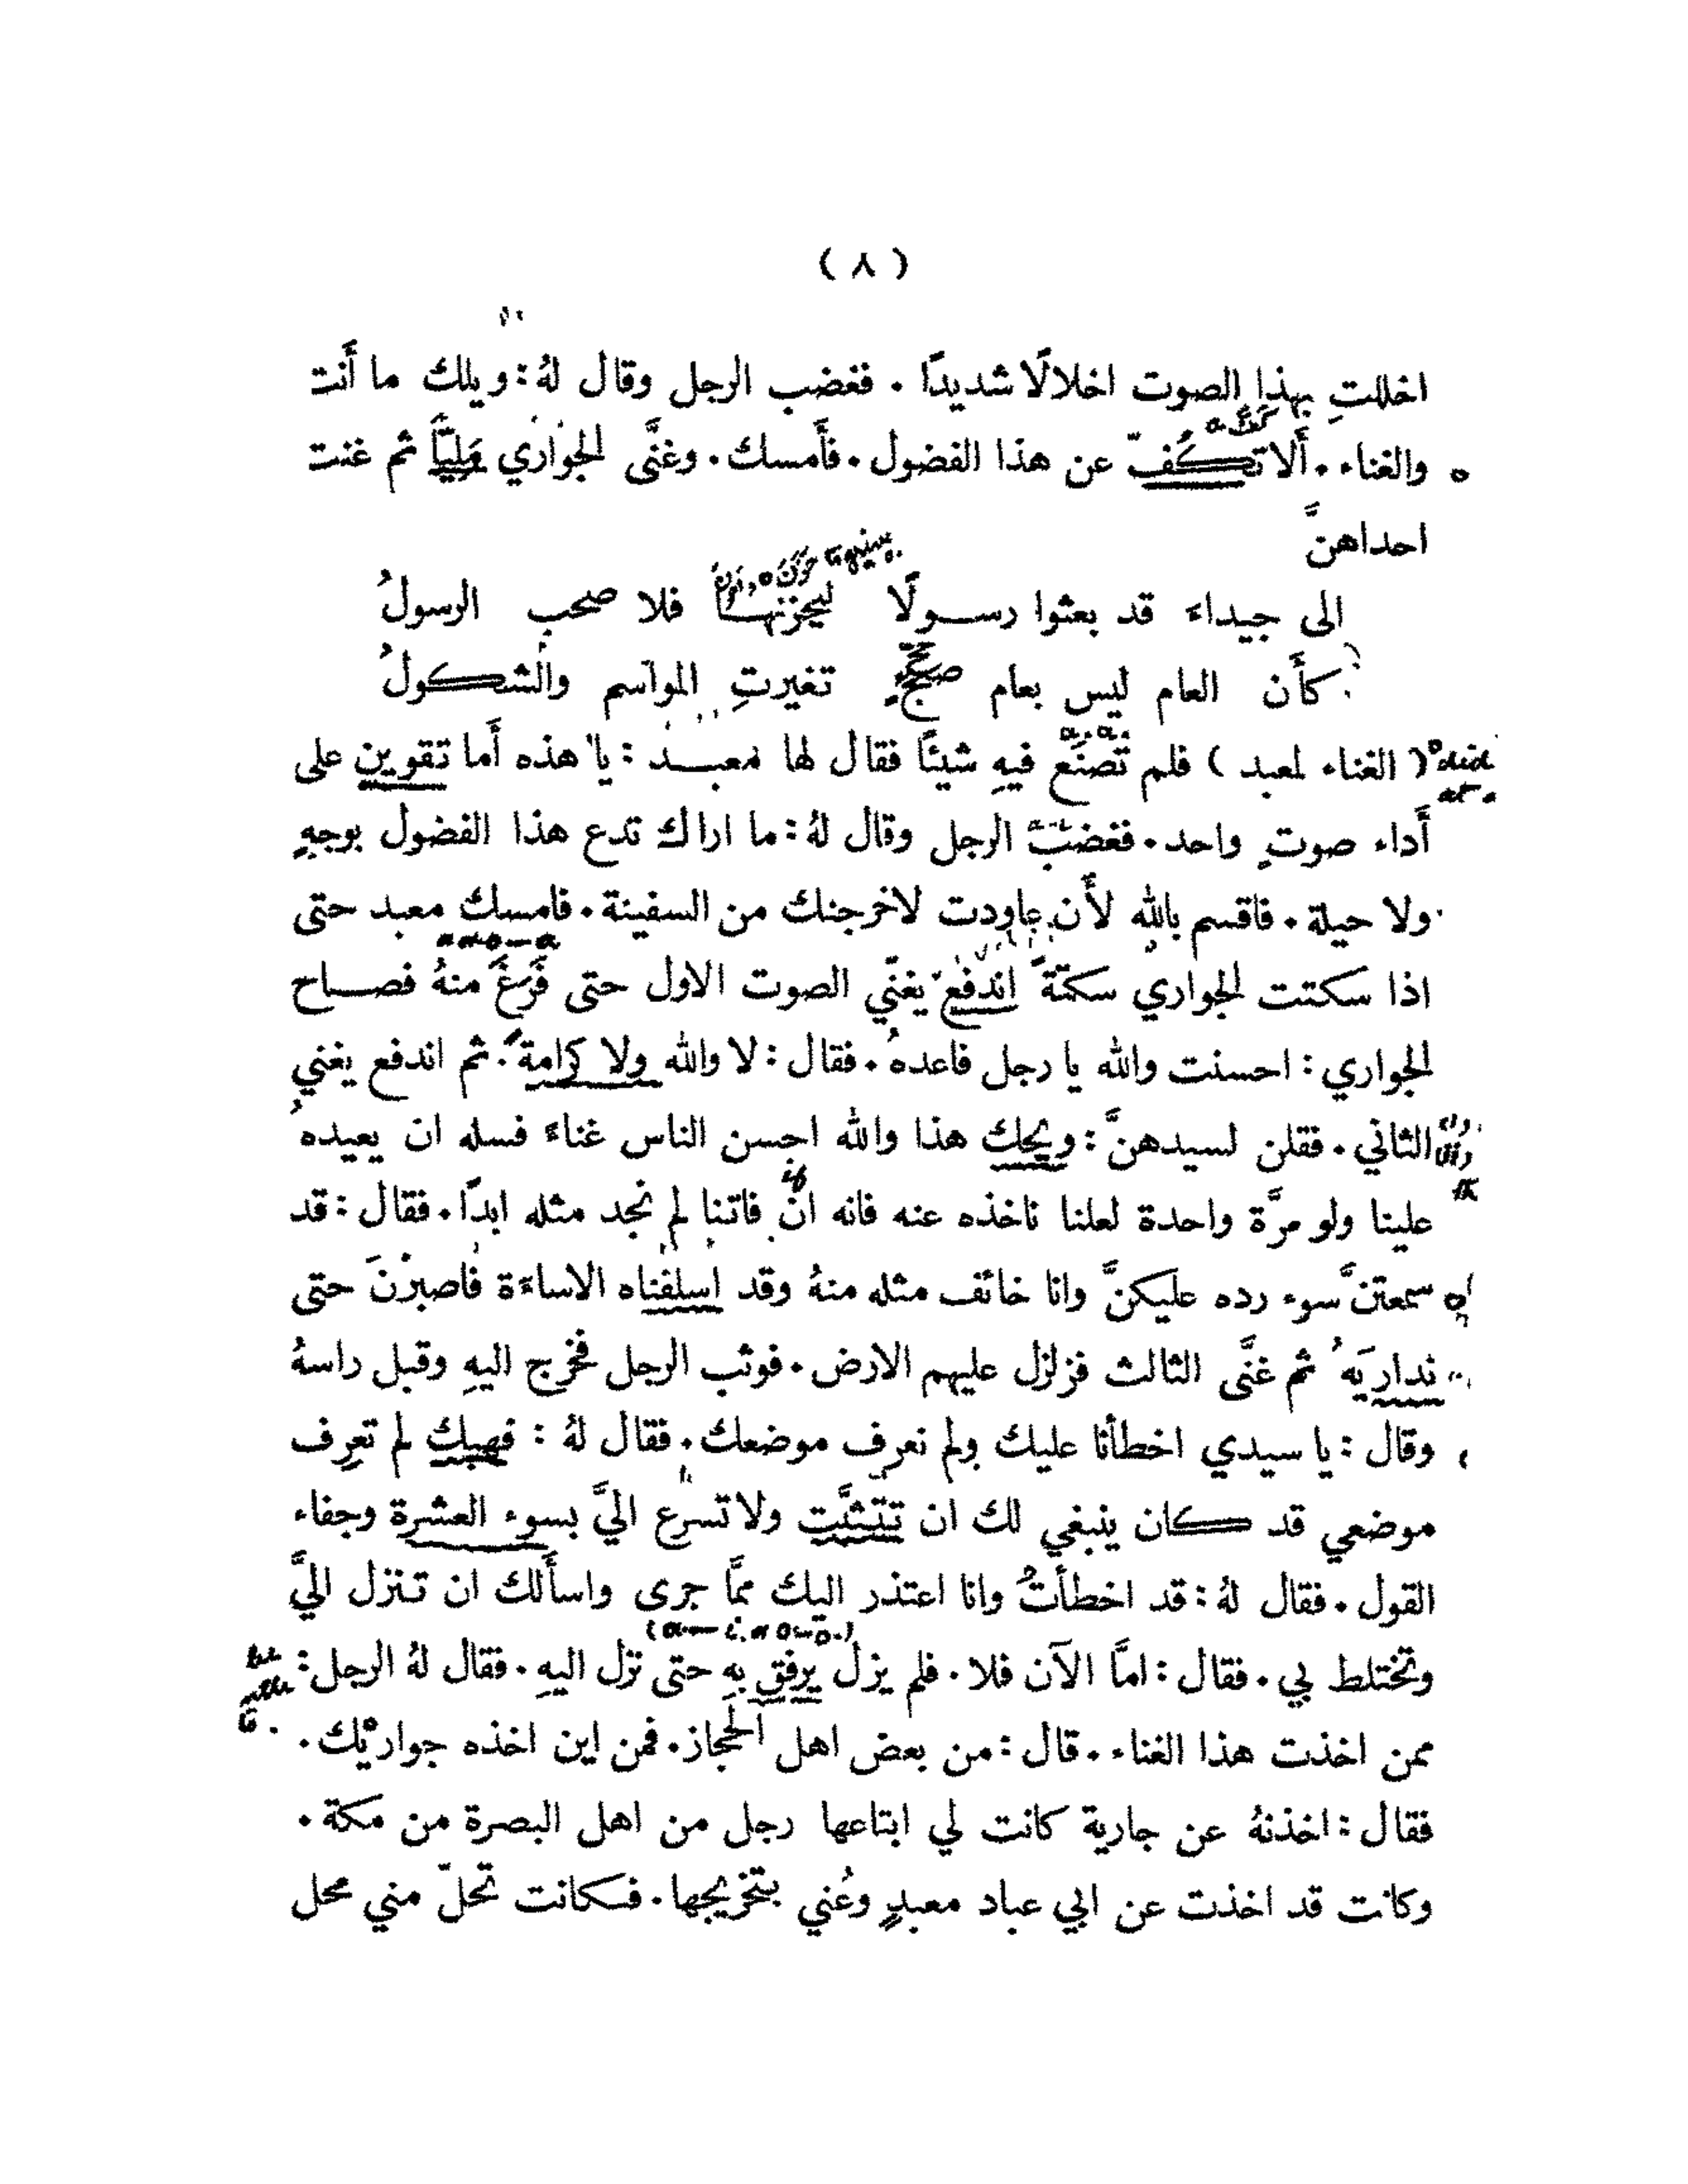 ( ٨ )
اخللتِ بهذا الصوت اخلالًا شديدًا . فغضب الرجل وقال لهُ : ويلك ما أَنت
والغناء . أَلا تكُفّ عن هذا الفضول . فأَمسك . وغنَّى الجواري مَلِيًّا ثم غنت
احداهنَّ
الى جيداءَ قد بعثوا رسولًا ليحزنها فلا صحب الرسولُ
كأَن العام ليس بعام حجٍّ تغيرتِ المواسم والشكولُ
( الغناء لمعبد ) فلم تَصْنَع فيهِ شيئًا فقال لها معبد : يا هذه أَما تقوين على
أَداء صوتٍ واحد . فغضب الرجل وقال لهُ : ما اراك تدع هذا الفضول بوجهٍ
ولا حيلة . فاقسم بالله لأَن عاودت لاخرجنك من السفينة . فامسك معبد حتى
اذا سكتت الجواري سكتةً اندفع يغنّي الصوت الاول حتى فَرَغَ منهُ فصاح
الجواري : احسنت والله يا رجل فاعدهُ . فقال : لا والله ولا كرامةً . ثم اندفع يغني
الثاني . فقلن لسيدهنَّ : ويحك هذا والله احسن الناس غناءً فسله ان يعيدهُ
علينا ولو مرَّة واحدة لعلنا ناخذه عنه فانه انْ فاتنا لم نجد مثله ابدًا . فقال : قد
سمعتنَّ سوء رده عليكنَّ وانا خائف مثله منهُ وقد اسلفناه الاساءَة فاصبرْنَ حتى
نداريَهُ ثم غنَّى الثالث فزلزل عليهم الارض . فوثب الرجل فخرج اليهِ وقبل راسهُ
وقال : يا سيدي اخطأنا عليك ولم نعرف موضعك . فقال لهُ : فهبك لم تعرِف
موضعي قد كان ينبغي لك ان تتثبَّت ولا تسرع اليَّ بسوء العشرة وجفاء
القول . فقال لهُ : قد اخطأتُ وانا اعتذر اليك ممَّا جرى واسأَلك ان تنزل اليَّ
وتختلط بي . فقال : امَّا الآن فلا . فلم يزل يرفق بهِ حتى نزل اليهِ . فقال لهُ الرجل :
ممن اخذت هذا الغناء . قال : من بعض اهل الحجاز . فمن اين اخذه جواريْك .
فقال : اخذنهُ عن جارية كانت لي ابتاعها رجل من اهل البصرة من مكة .
وكانت قد اخذت عن ابي عباد معبدٍ وعُني بتخريجها . فكانت تحلّ مني محل